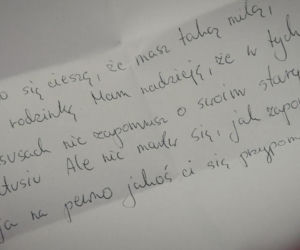 o się cieszę, że masz taką miłą,
rodzinkę. Mam nadzieję, że w tych
susach nie zapomnisz o swoim stary
tusiu Ale nie martw się, jak zapo
ja na pewno jakoś ci się przypom